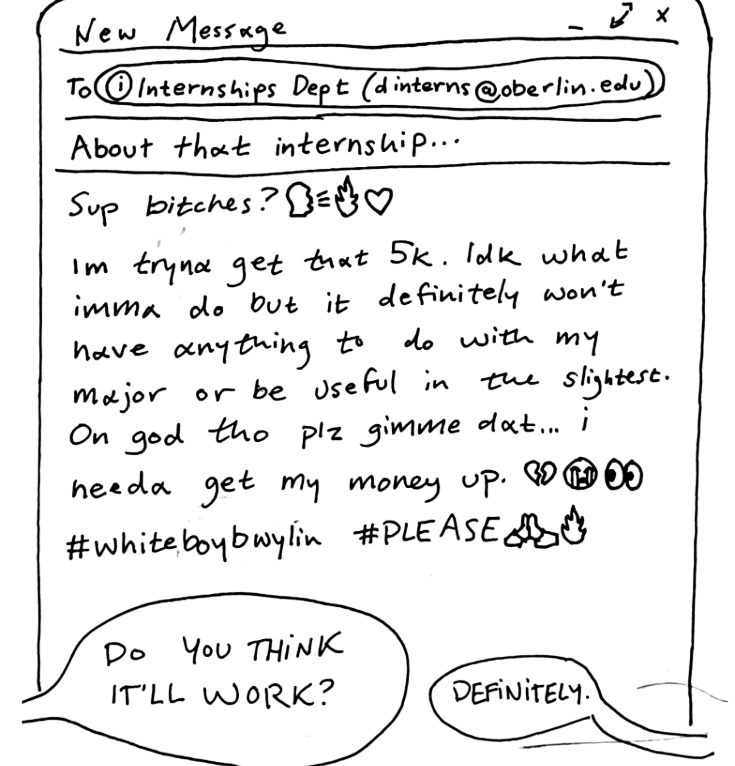 New Message
To ⓘ Internships Dept (dinterns@oberlin.edu)
About that internship...
Sup bitches? 🗣🔥♡
Im tryna get that 5k. Idk what
imma do but it definitely won't
have anything to do with my
major or be useful in the slightest.
On god tho plz gimme dat... i
needa get my money up. 💔😭👀
#whiteboybwylin #PLEASE🙏🔥
DO YOU THINK
IT'LL WORK?
DEFINITELY.